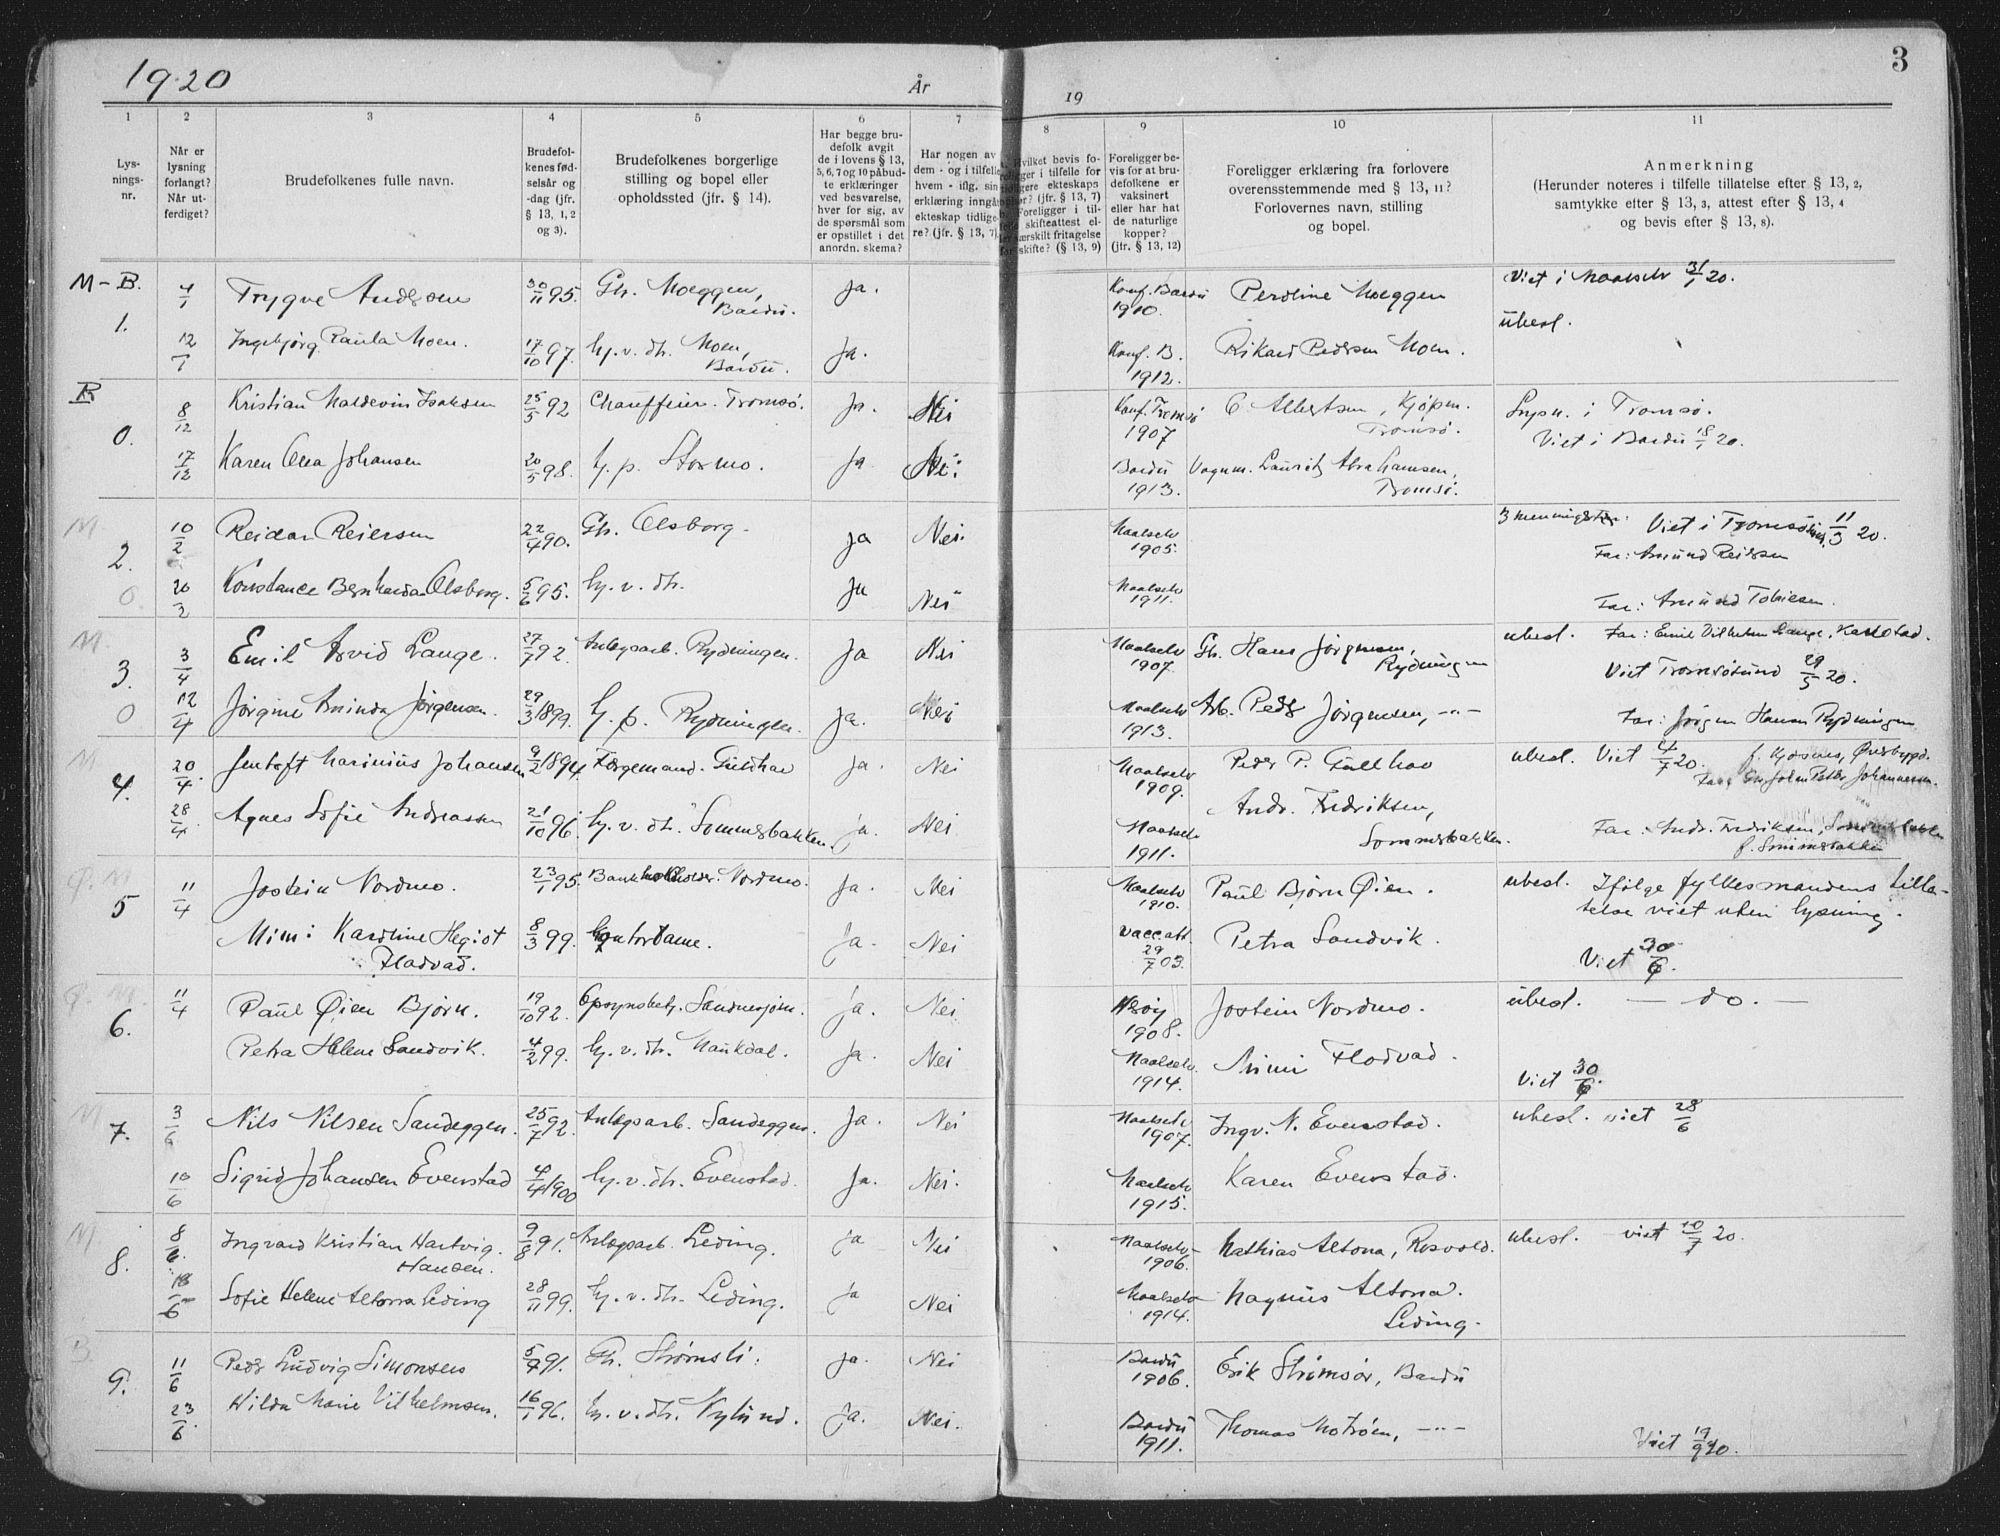 1920
År
19
3
1
2
3
4
5
6
7
8
9
10
11
Lys-
nings-
nr.
Når er
lysning
forlangt?
Når ut-
ferdiget?
Brudefolkenes fulle navn.
Brudefol-
kenes fød-
selsår og
-dag (jfr.
§ 13, 1, 2
og 3).
Brudefolkenes borgerlige
stilling og bopel eller
opholdssted (jfr. § 14).
Har begge bru-
defolk avgit
de i lovens § 13,
5, 6, 7 og 10 påbud-
te erklæringer
ved besvarelse,
hver for sig, av
de spørsmål som
er opstillet i det
anordn. skema?
Har nogen av
dem - og i tilfelle
hvem - iflg. sin
erklæring inngå
ekteskap tidlige-
re? (jfr. § 13, 7)
Hvilket bevis fo-
religger i tilfelle for
tidligere ekteskaps
ophør? (jfr. § 13, 7)
Foreligger i til-
felle skifteattest el-
ler særskilt fritagelse
for skifte? (§ 13, 9)
Foreligger be-
vis for at bru-
defolkene er
vaksinert
eller har hat
de naturlige
kopper?
(jfr. § 13, 12)
Foreligger erklæring fra forlovere
overensstemmende med § 13, 11?
Forlovernes navn, stilling
og bopel.
Anmerkning
(Herunder noteres i tilfelle tillatelse efter § 13, 2,
samtykke efter § 13, 3, attest efter § 13, 4
og bevis efter § 13, 8).
M-B. 4/1 Trygve Andersen 30/11 95. Gb. Moeggen, Bardü. Ja. Konf. Bardü 1910. Perdine Moeggen Viet i Maalselv 31/1 20.
1. 12/1 Ingebjørg Paula Moen. 17/10 97. hj.v.dtr. Moen, Bardü. Ja. Konf. B. 1912. Rikard Pedersen Moen. übesl.
B 8/12 Kristian Maldevin Isaksen 25/5 92 Chauffeur. Tromsø. Ja. Nei Konf. Tromsø 1907 C. Albertsen, Kjøpm. Tromsø. Lysn. i Tromsø.
Viet i Bardü 18/1 20.
0. 17/12 Karen Olea Johansen 20/5 98. hj. p. Stormo. Ja Nei Bardü 1913. Vognm. Lauritz Abrahamsen, Tromsø.
M 10/2 Reidar Reiersen 22/4 90. Gb. Olsborg. Ja Nei. Maalselv 1905. 3 menningster. Viet i Tromsø 11/3 20.
Far: Amünd Reiersen
2. 0. 20/2 Konstance Bernharda Olsborg. 5/6 95. hj.v.dtr. Ja Nei Maalselv 1911. Far: Amünd Tobiesen.
M 3/4 Emil Arvid Lange. 27/7 92. Anlægsarb. Rydningen. Ja Nei Maalselv 1907. Gb. Hans Jørgensen, Rydningen ubesl. Far: Emil Vilhelm Lange, Karlstad.
Viet Tromsøsund 29/5 20.
3. 0 12/4 Jørgine Aminda Jørgensen. 29/3 1899. hj. p. Rydningen. Ja. Nei Maalselv 1913. Arb. Peder Jørgensen, -"- Far: Jørgen Hansen Rydningen
M 20/4. Jentoft Marinius Johansen 9/2 1894 Førgemand. Guldhav Ja. Nei Maalselv 1909. Peder P. Gullhav ubesl. Viet 4/7 20. f. Kjosnes, Øverbygd.
Far: Gb. Johan Peter Johannesen.
4. 28/4. Agnes Sofie Andreassen 21/10 96. hj.v.dtr. Sommerbakken. Ja. Nei Maalselv 1911. Andr. Fredriksen, Sommerbakken. Far: Andr. Fredriksen,
f. Sommerbakken
Ø. M 11/4 Jostein Nordmo. 23/1 95. Nordmo. Ja. Nei Maalselv 1910. Paul Bjørn Øien. ubesl. Ifølge fylkesmandens tilla-
telse viet uten lysning.
5 Mimi Karoline Hegiot Fladvad. 8/3 99. Kontordame. Ja. Nei vacc.att. 29/7 03. Petra Sandvik. Viet 30/6.
Ø. M. 11/4 Paul Øien Bjørn. 19/10 92. Opsynsbetj. Sandnesjøen. Ja. Nei Herøy 1908. Jostein Nordmo. übesl. — do. —
6. Petra Helene Sandvik. 4/2 99. hj.v.dtr. Maukdal. Ja. Nei Maalselv 1914. Mimi Fladvad. Viet 30/6.
M 3/6 Nils Nilsen Sandeggen. 25/7 92. Anlægsarb. Sandeggen. Ja. Nei Maalselv 1907. Ingv. N. Evenstad. ubesl. viet 28/6
7. 10/6 Sigrid Johansen Evenstad 4/4 1900 hj.v.dtr. Evenstad. Ja. Nei. Maalselv 1915. Karen Evenstad.
M 8/6. Ingvard Kristian Hartvig Hansen. 9/8 91. Anlægsarb. Leding. Ja Nei Maalselv 1906. Mathias Altona, Rosvold. ubesl. viet 10/7 20.
8. 18/6 Sofie Helene Altona Leding 28/11 99. hj.v.dtr. Leding. Ja Nei Maalselv 1914. Magnus Altona. Leding.
B. 11/6 Peder Ludvig Simonsen 5/7 91. Gb. Strømsli. Ja. Nei Bardü 1906. Erik Strømsør, Bardü
9. 23/6 Hilda Marie Vilhelmsen. 16/1 96. hj.v.dtr. Nylund. Ja. Nei. Bardü 1911. Thomas Motrøen, -"- Viet 19/9 20.